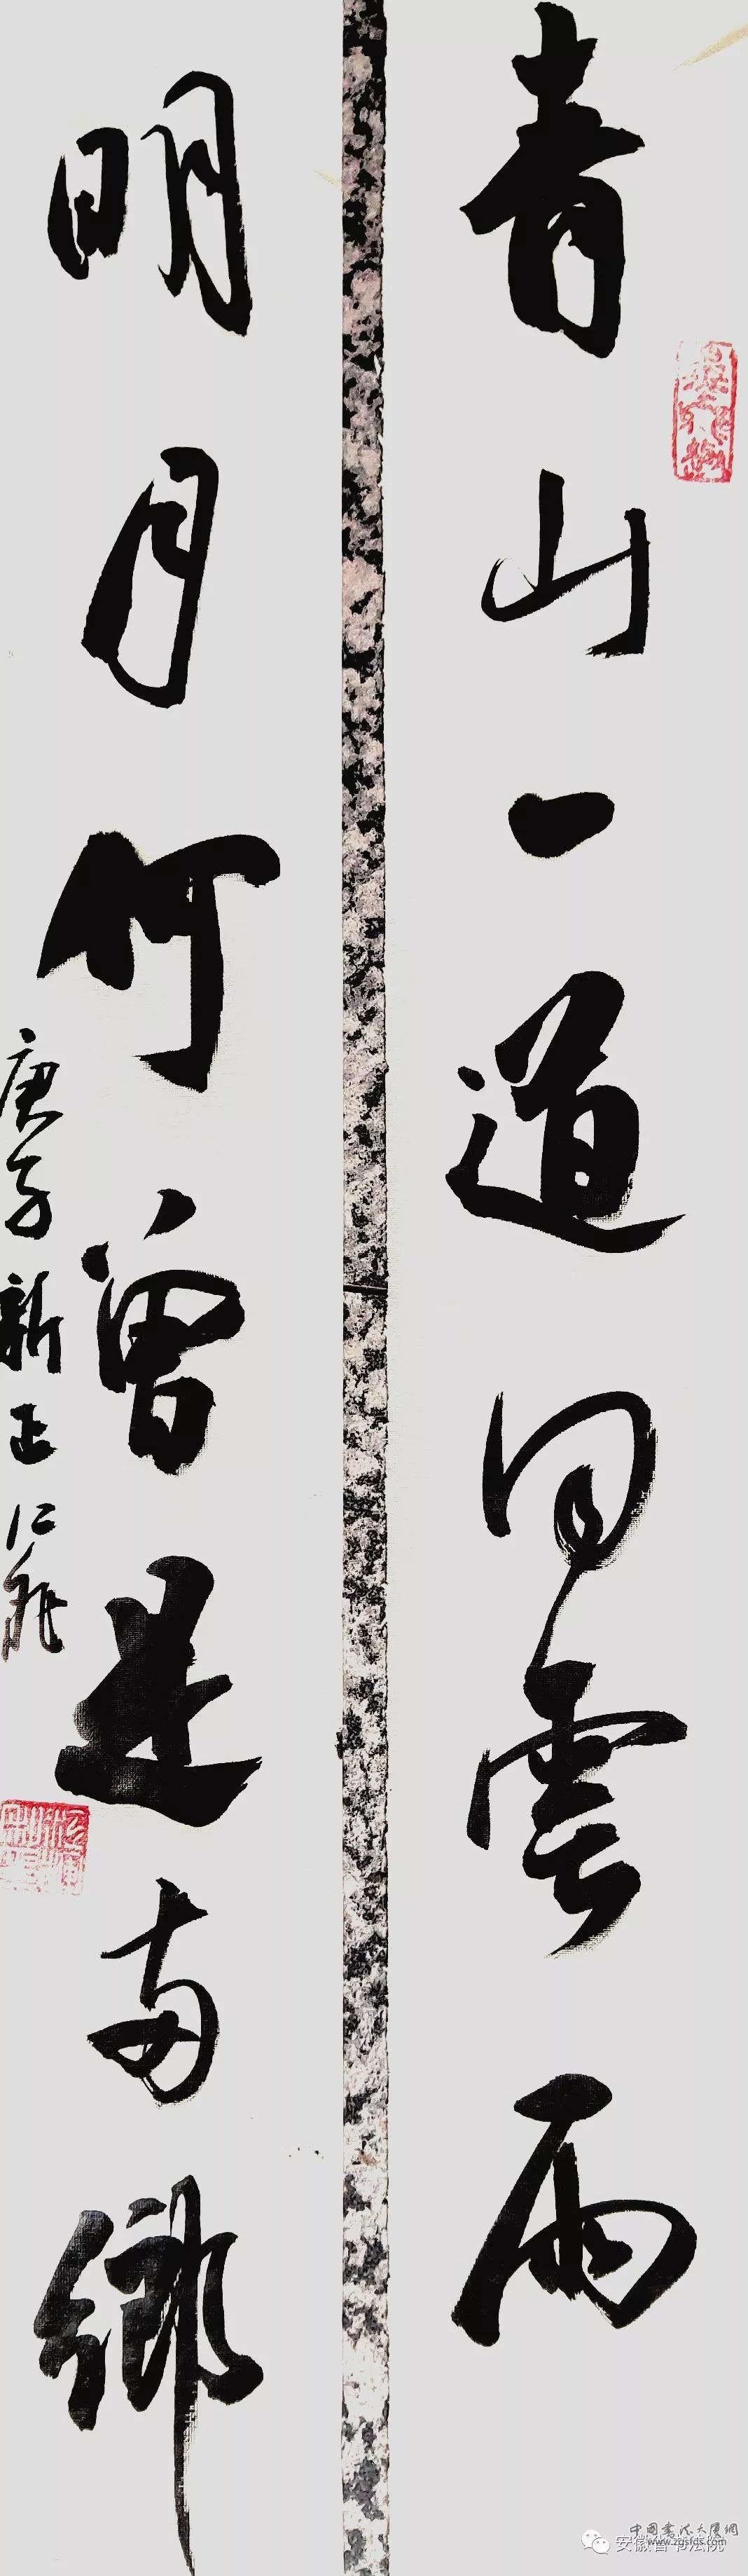 青山一道同雲雨
明月何曾是兩鄉
庚子新正仁飛
中國書法大厦網
www.zgsfds.com
安徽省书法院